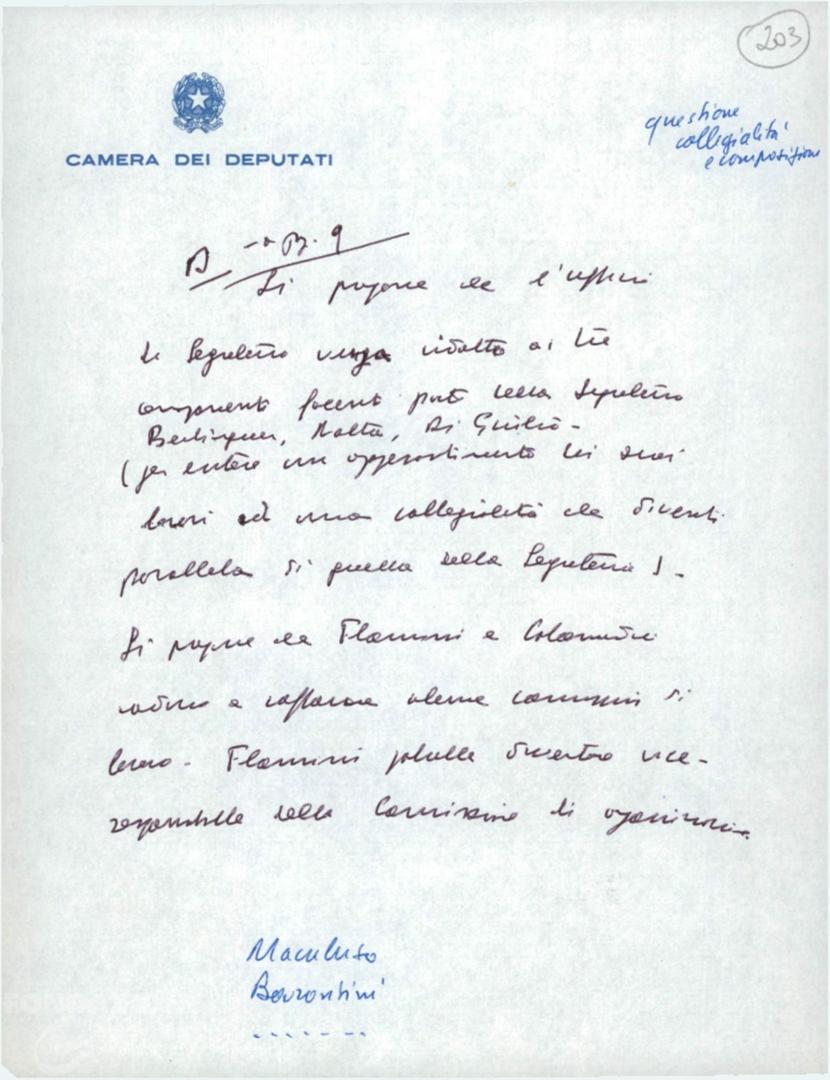 203
CAMERA DEI DEPUTATI
questione
collegialità
e composizione
Si propone che l'ufficio
di Segreteria venga ridotto ai tre
componenti facenti parte della Segreteria
Berlinguer, Natta, Di Giulio -
(per evitare un appesantimento dei suoi
lavori ed una collegialità che diventi
parallela di quella della Segreteria) -
Si propone che Flamini e Colombi
vadano a rafforzare alcune commissioni di
lavoro - Flamini potrebbe diventare vice-
responsabile della Commissione di organizzazione
Macaluso
Bavrontini